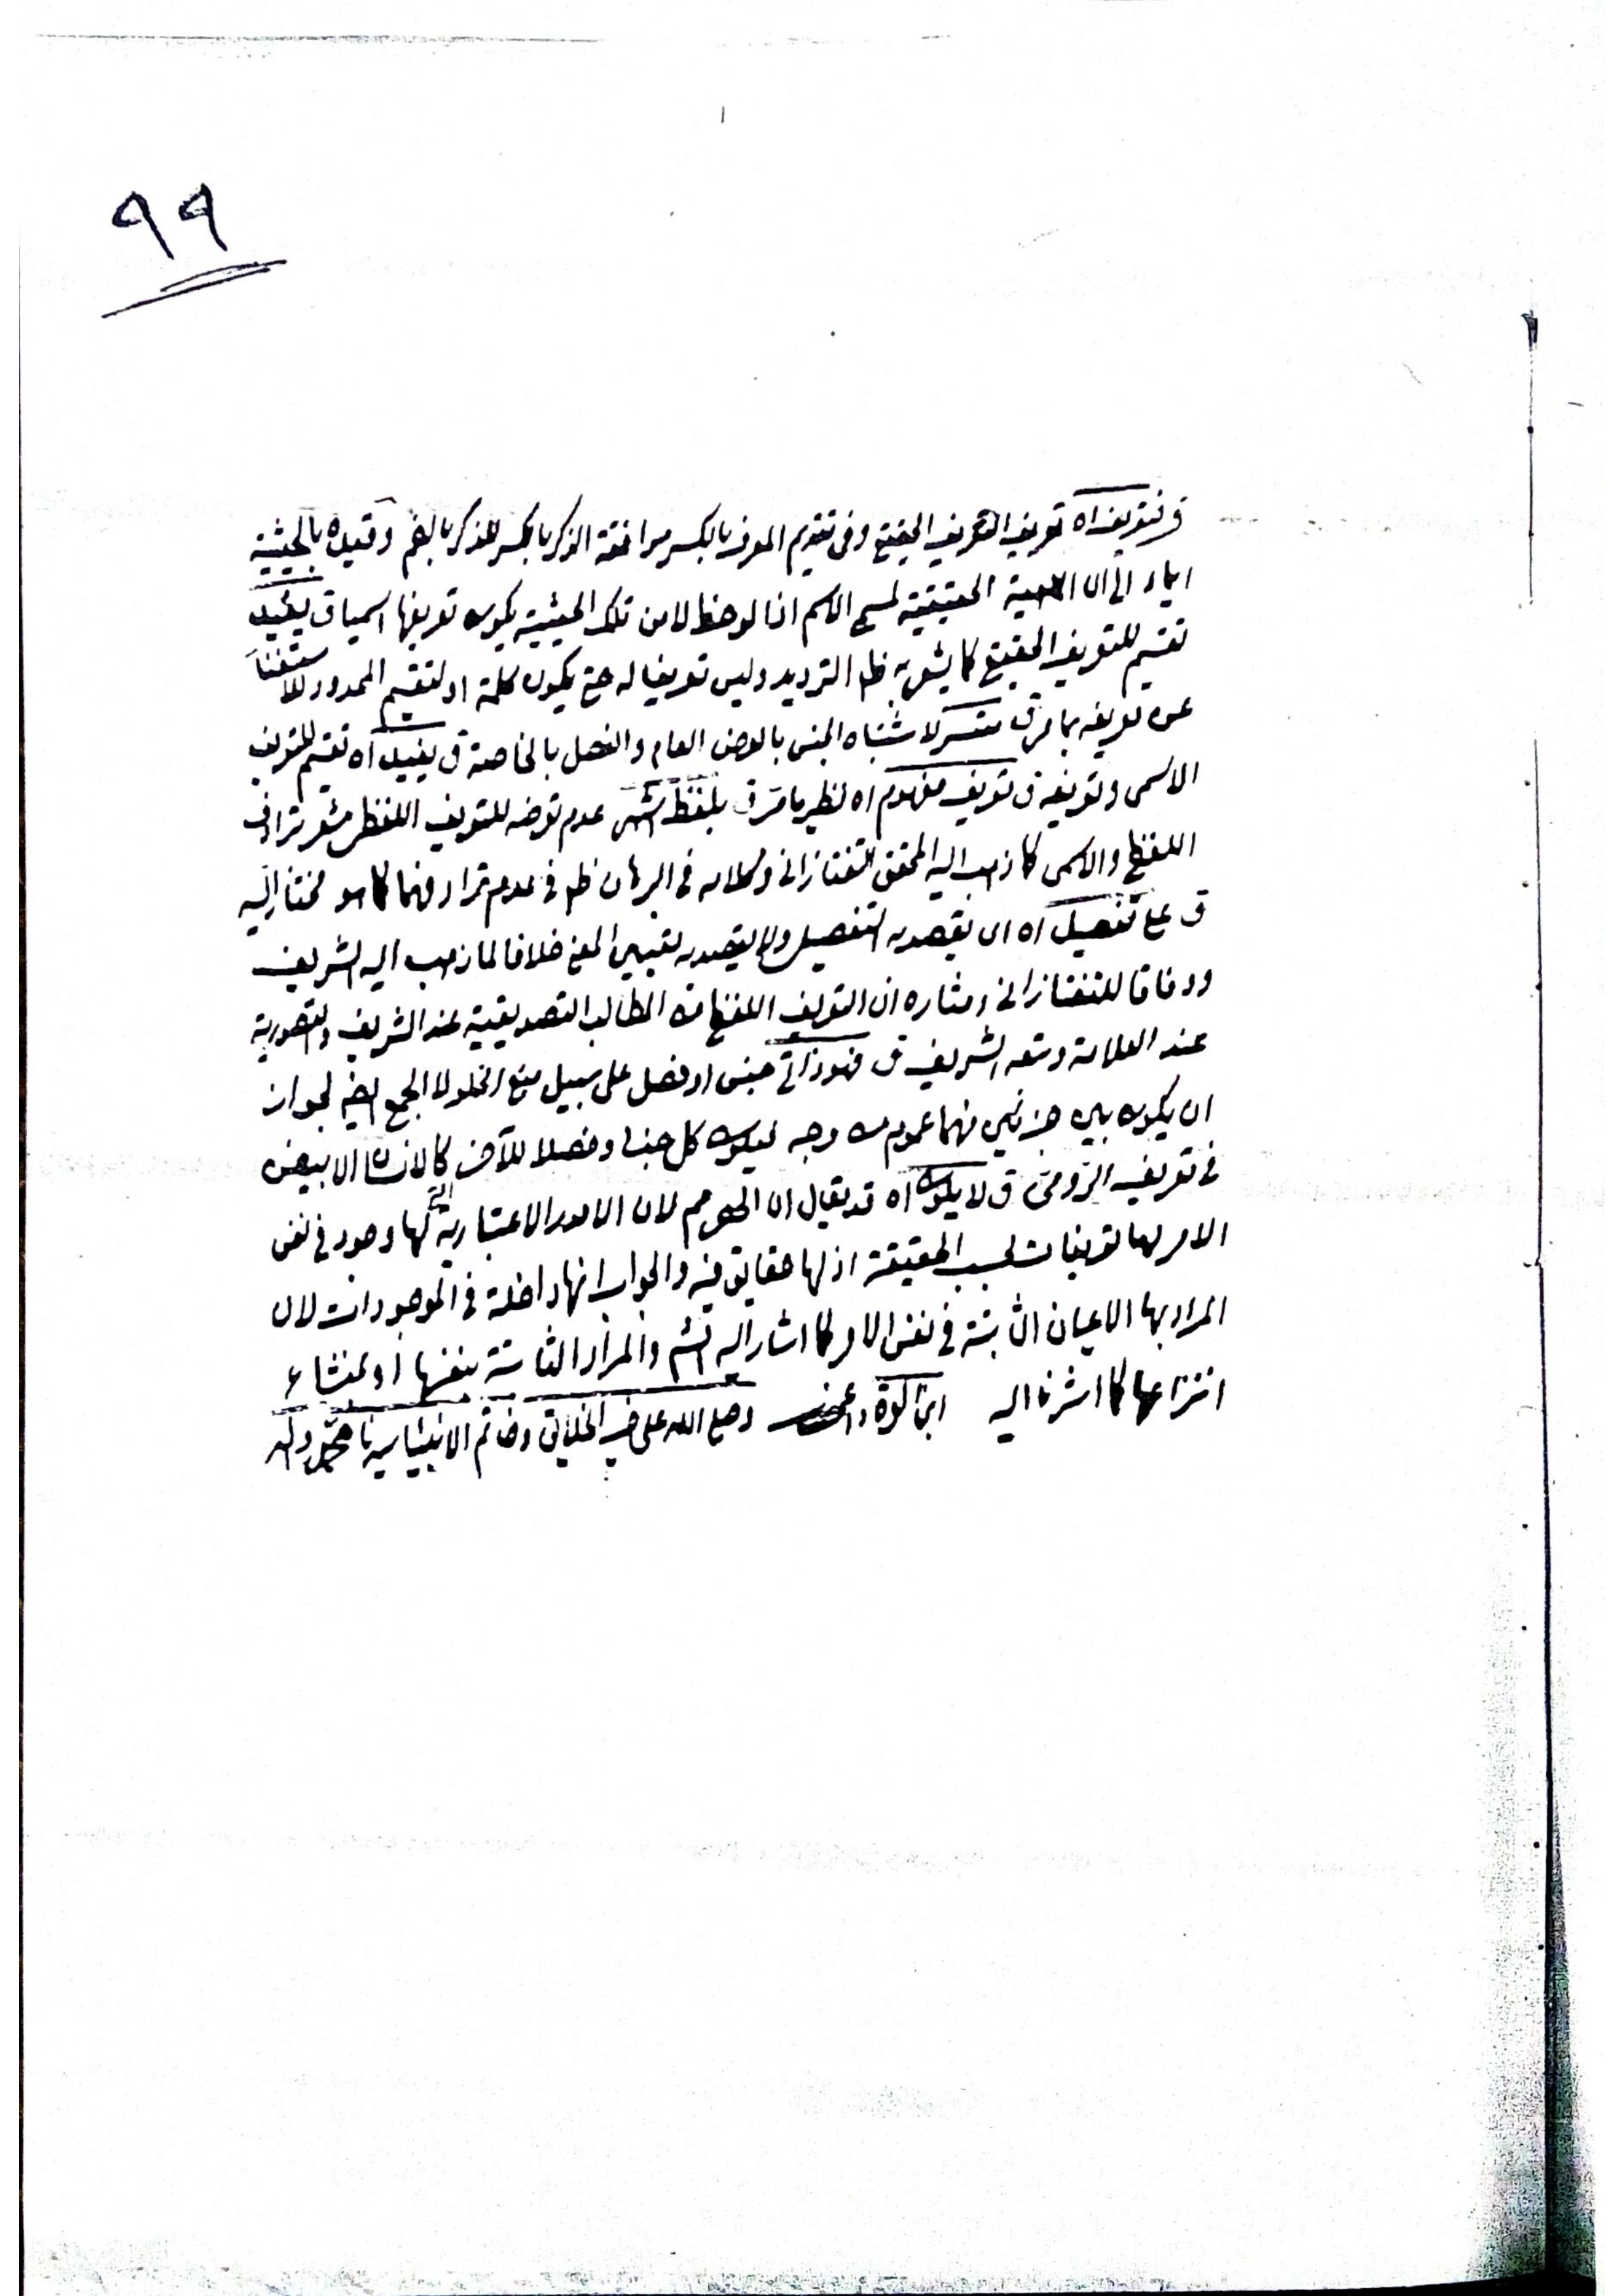 ٩٩
ق فتعريف اه تعريف التعريف الحقيقي وفى تقديم المعرف بالكسر موافقة الذكر بالكسر للذكر بالضم وقيده بالحيثية
ايماء الى ان الماهية الحقيقية لمسمى الاسم اذا لوحظ لا من تلك الحيثية يكون تعريفها اسميا ق يفيد
تقسيم للتعريف الحقيقي كما يشعر به ظ الترديد وليس تعريفا له حتى يكون كلمة او لتقسيم المحدود للاستغناء
عن تعريفه بما مر ق متعسر لاشتباه الجنس بالعرض العام والفصل بالخاصة ق يفيد اه تقسيم للتعريف
الاسمى وتعريفه ق تعريف مفهوم اه نظير ما مر ق بلفظ اشهر عدم تعرضه للتعريف اللفظى مشعر بترادف
اللفظى والاسمى كما ذهب اليه المحقق التفتازانى وكلامه فى البرهان ظ فى عدم ترادفهما كما هو مختار السيد
ق على تفصيل اه اى يقصد به التفصيل ولا يقصد به تعيين المعنى خلافا لما ذهب اليه الشريف
ووفاقا للتفتازانى ومثاره ان التعريف اللفظى من المطالب التصديقية عند الشريف والتصورية
عند العلامة وتبعه الشريف ق فهو ذاتى جنس او فصل على سبيل منع الخلو لا الجمع ايضا لجواز
ان يكون بين جزئين منهما عموم من وجه فيكون كل جنسا وفصلا للآخر كالانسان الابيض
فى تعريف الرومى ق لا يكون اه قد يقال ان الحصر مم لان الامور الاعتبارية التى لها وجود فى نفس
الامر لها تعريفات بحسب الحقيقة اذ لها حقايق فيه والجواب انها داخلة فى الموجودات لان
المراد بها الاعيان الثابتة فى نفس الامر كما اشار اليه الش والمراد الثابتة بنفسها او بمنشاء
انتزاعها كما اشرنا اليه ابن القره داغى وصلى الله على خير الخلايق وخاتم الانبياء سيدنا محمد وآله